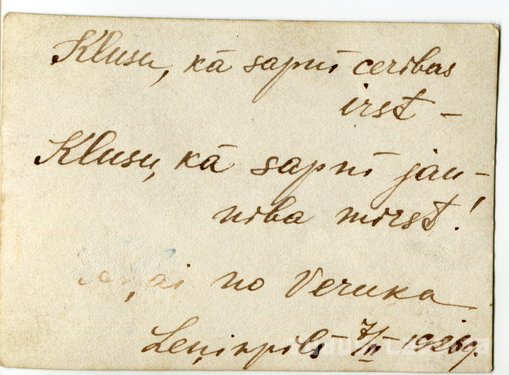 Klusu, kā sapnī cerības
irst –
Klusu, kā sapnī jau-
nība mirst!
no Veruka
Ļeņinpilī 7/II 1926g.